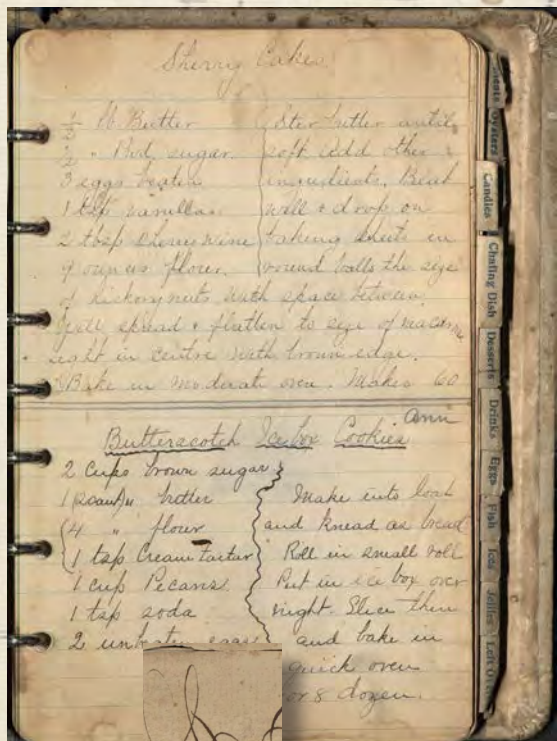 Sherry Cakes
1/2 lb Butter
1/2 " Bird. sugar
3 eggs beaten
1 tsp vanilla
2 tbsp Sherry wine
9 ounces flour.
Ster butter until
soft add other
ingredients. Beat
well & drop on
baking sheets in
round balls the size
of hickorynuts with space between.
Will spread & flatten to size of
light in centre with brown edge.
Bake in moderate oven. Makes 60
Ann
Butterscotch Icebox Cookies
2 cups brown sugar
1 butter
4 " flour
1 tsp Cream Tartar
1 cup Pecans
1 tsp soda
2 unbeaten eggs
Make into loaf
and knead as bread
Roll in small roll
Put in ice box over
night. Slice thin
and bake in
quick oven
for 8 dozen.
Oysters
Candies
Chafing Dish
Desserts
Drinks
Eggs
Fish
Ices
Jellies
Left Overs